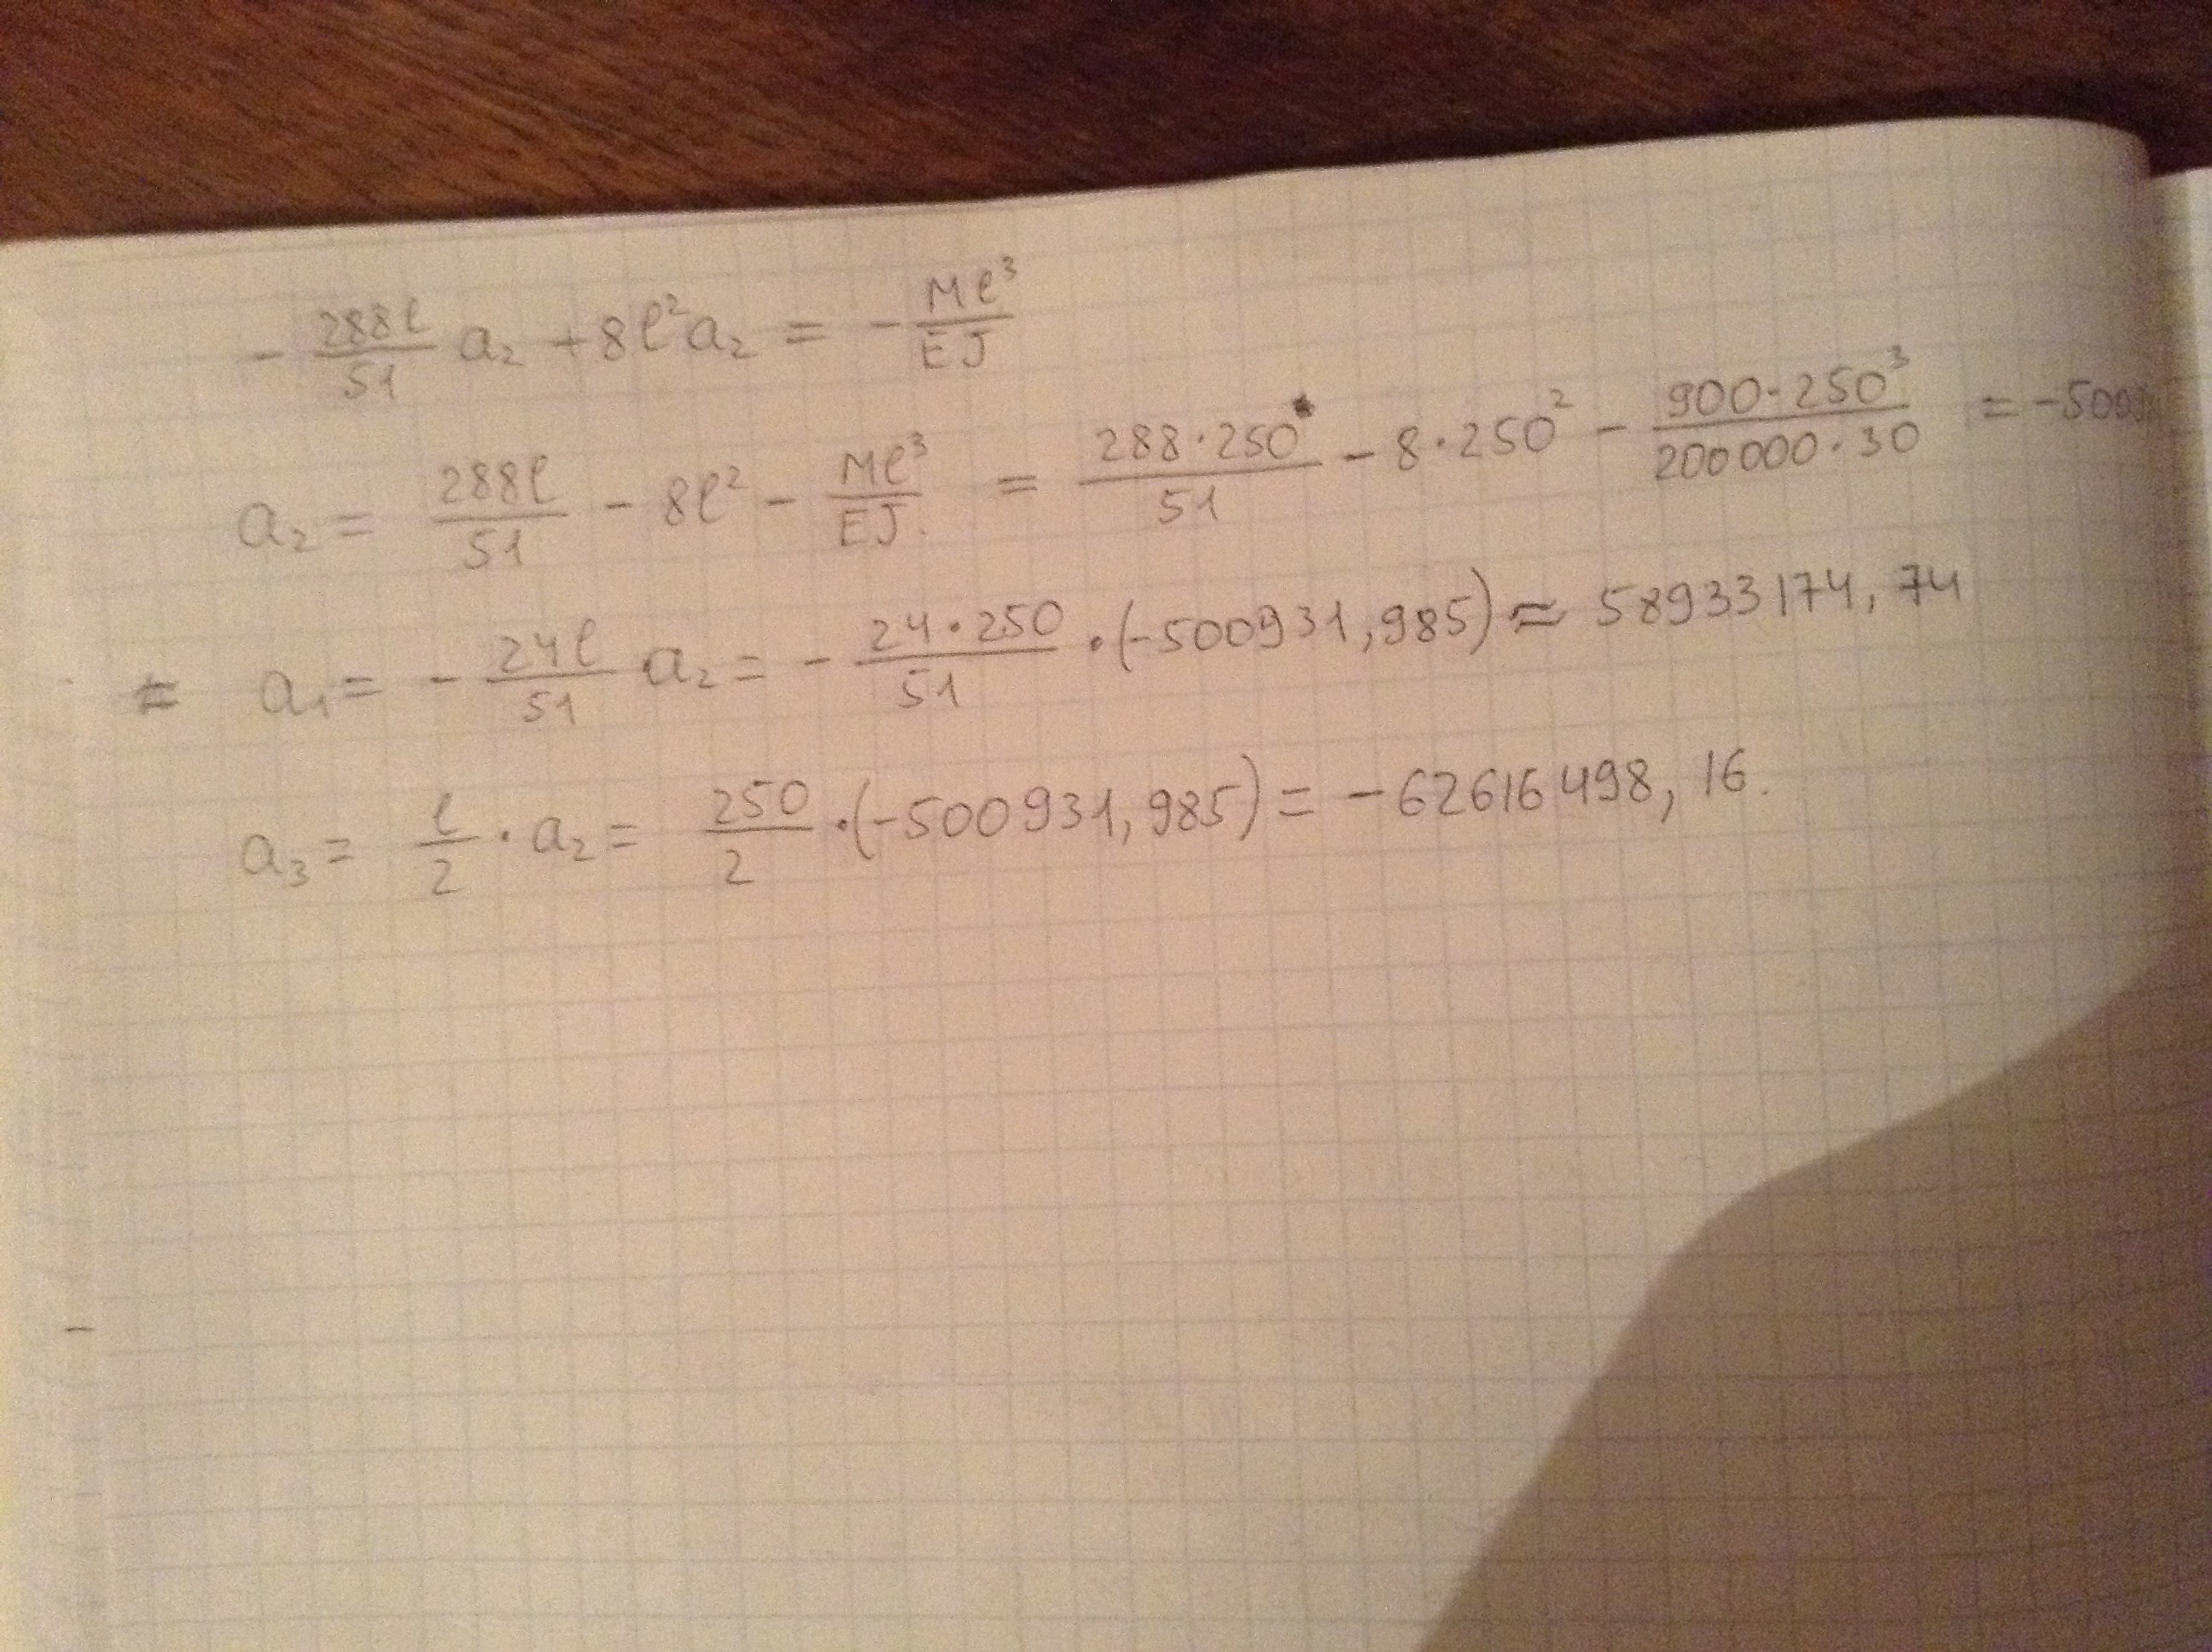 - 288l/51 a₂ + 8l²a₂ = - Ml³/EJ
a₂ = 288l/51 - 8l² - Ml³/EJ. = 288·250/51 - 8·250² - 900·250³/200000·30 = -5009
= a₁ = - 24l/51 · a₂ = - 24·250/51 · (-500931,985) ≈ 58933174,74
a₃ = l/2 · a₂ = 250/2 · (-500931,985) = -62616498,16.